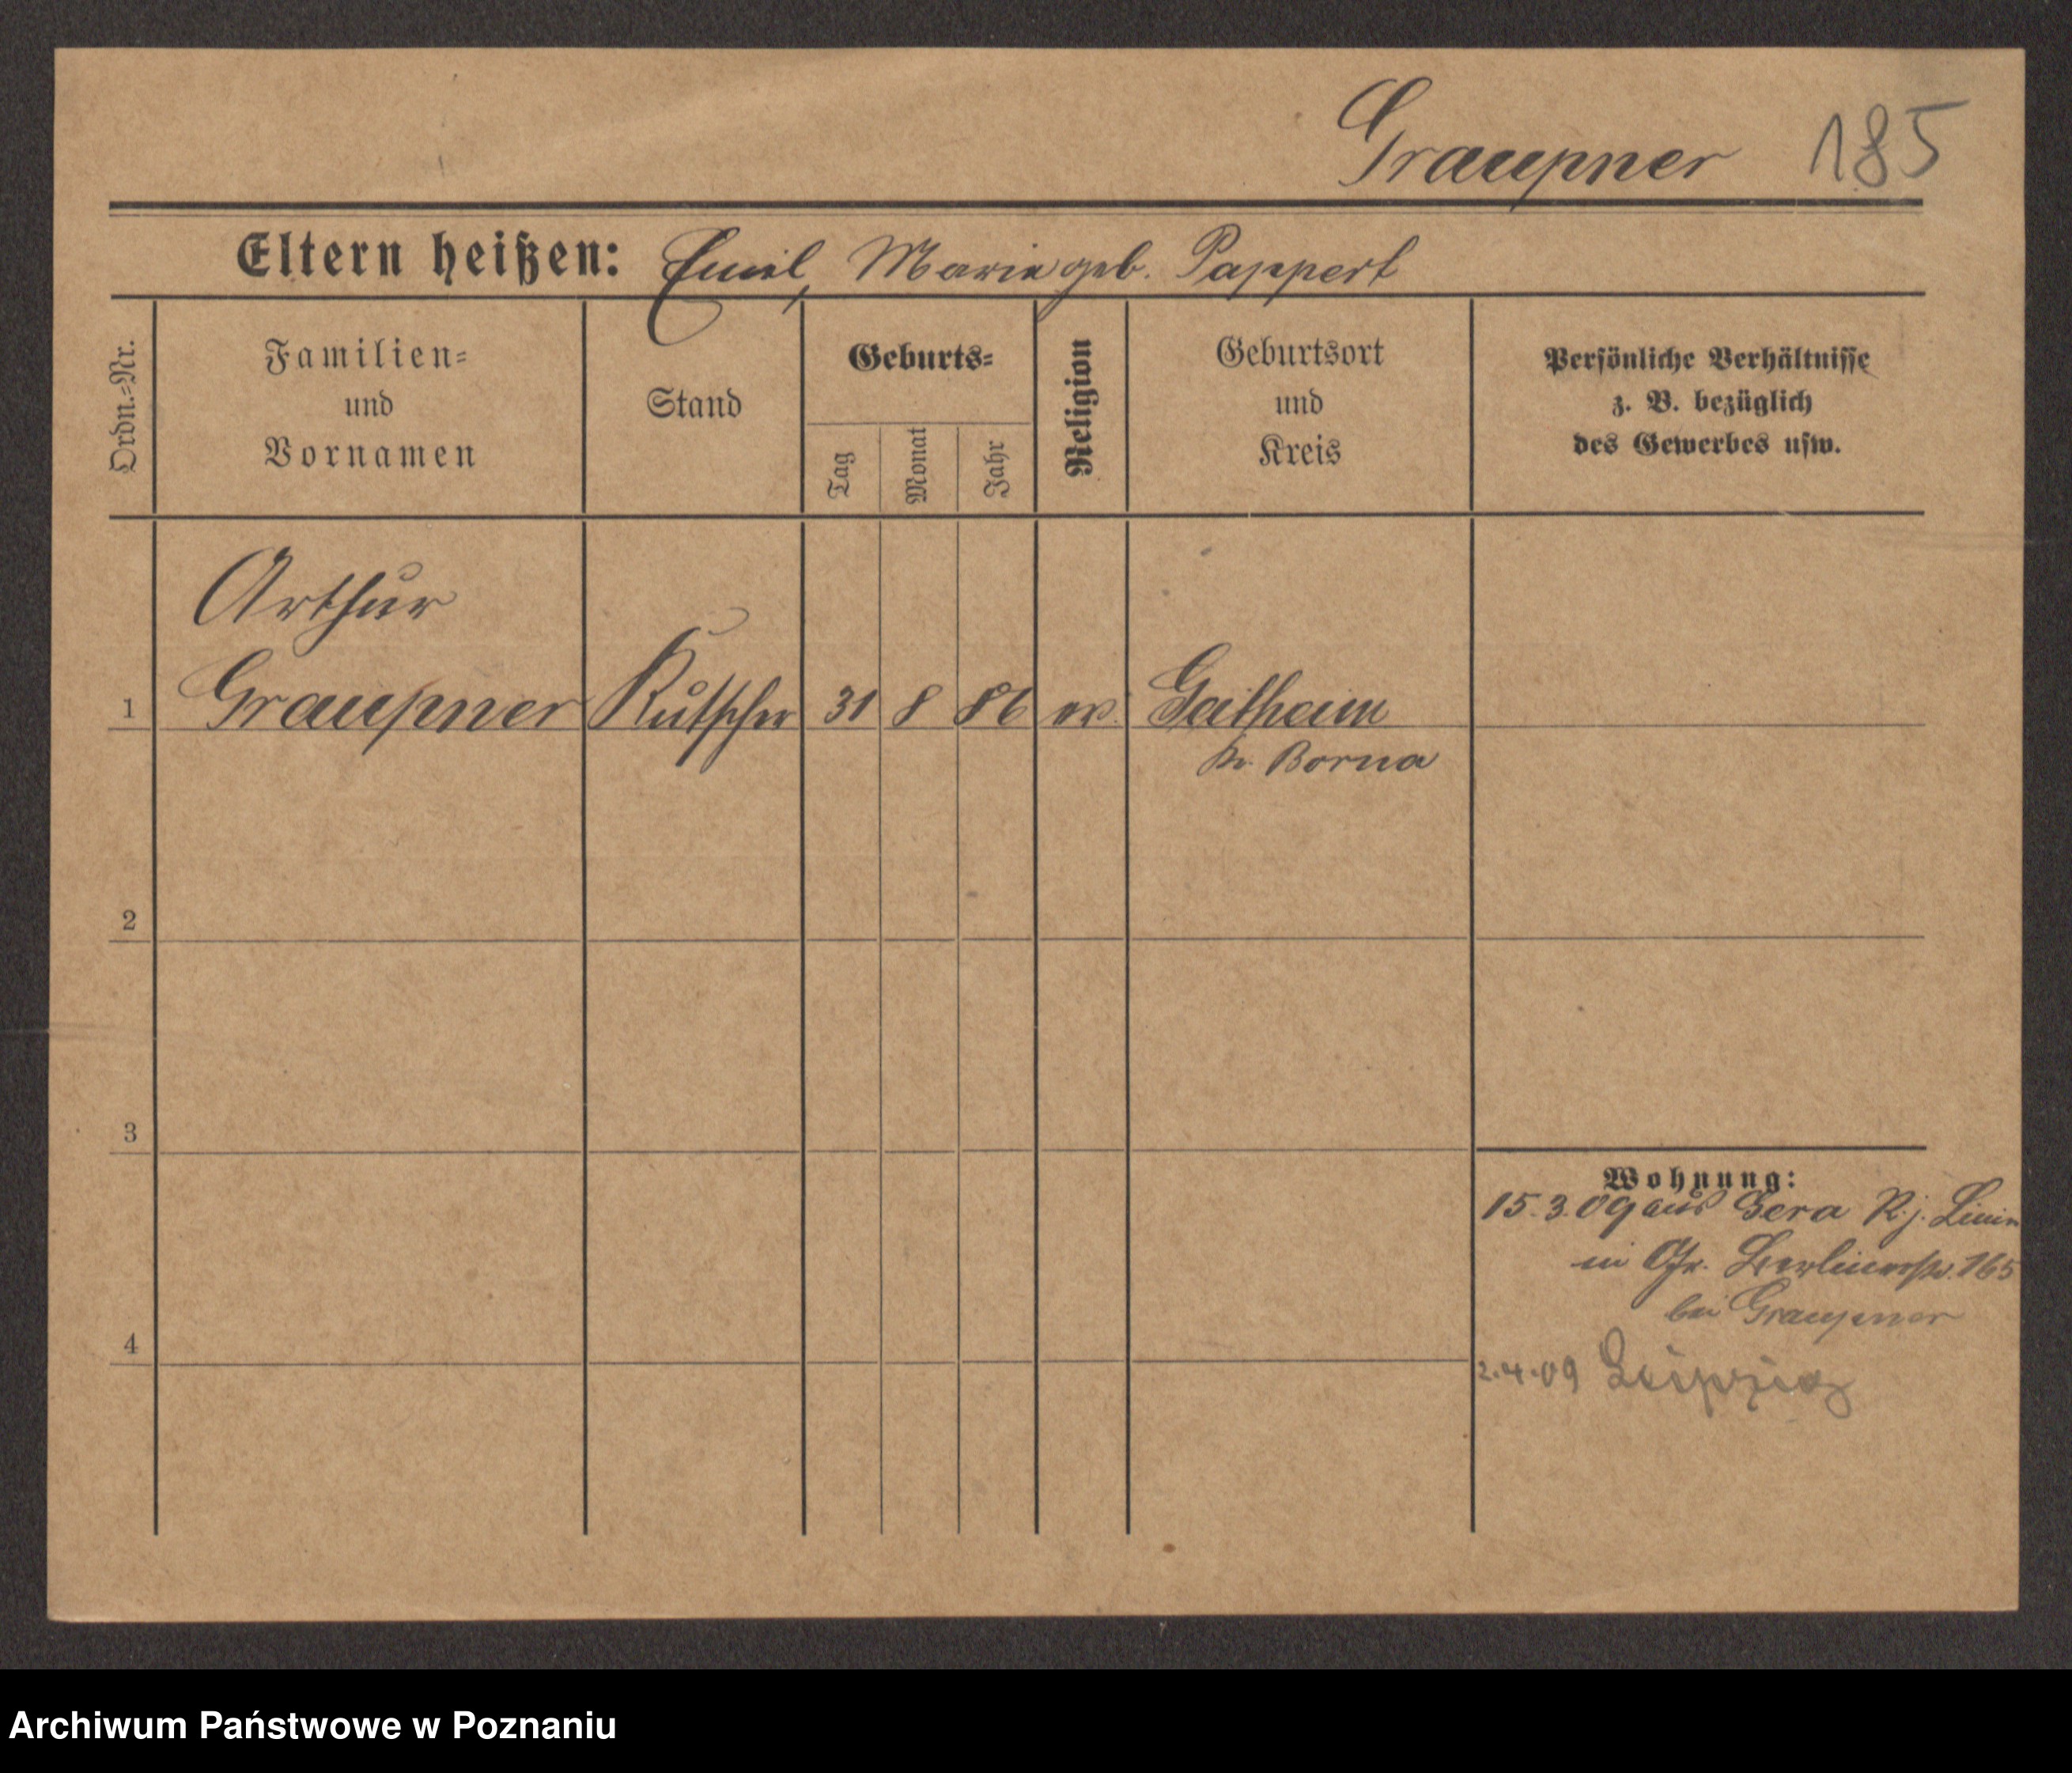 Graupner 185
Eltern heißen: Emil, Marie geb. Pappert
Ordn.=Nr.
Familien=
und
Vornamen
Stand
Geburts=
Tag
Monat
Jahr
Religion
Geburtsort
und
Kreis
Persönliche Verhältnisse
z. B. bezüglich
des Gewerbes usw.
Arthur
1 Graupner Kutscher 31 8 86 ev. Geithain
Kr. Borna
2
3
Wohnung:
15.3.09 aus Gera R. j. L.
in Gr. Berlinerstr. 165
bei Graupner
4
2.4.09 Leipzig
Archiwum Państwowe w Poznaniu